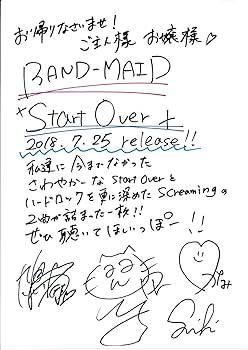 お帰りなさいませ!
ご主人様 お嬢様♡
BAND-MAID
Start Over +
2018.7.25 release!!
私達に今までなかった
さわやかーな Start Overと
ハードロックを更に深めた Screamingの
2曲が詰まった一枚!!
ぜひ聴いてほしいっぽー!!